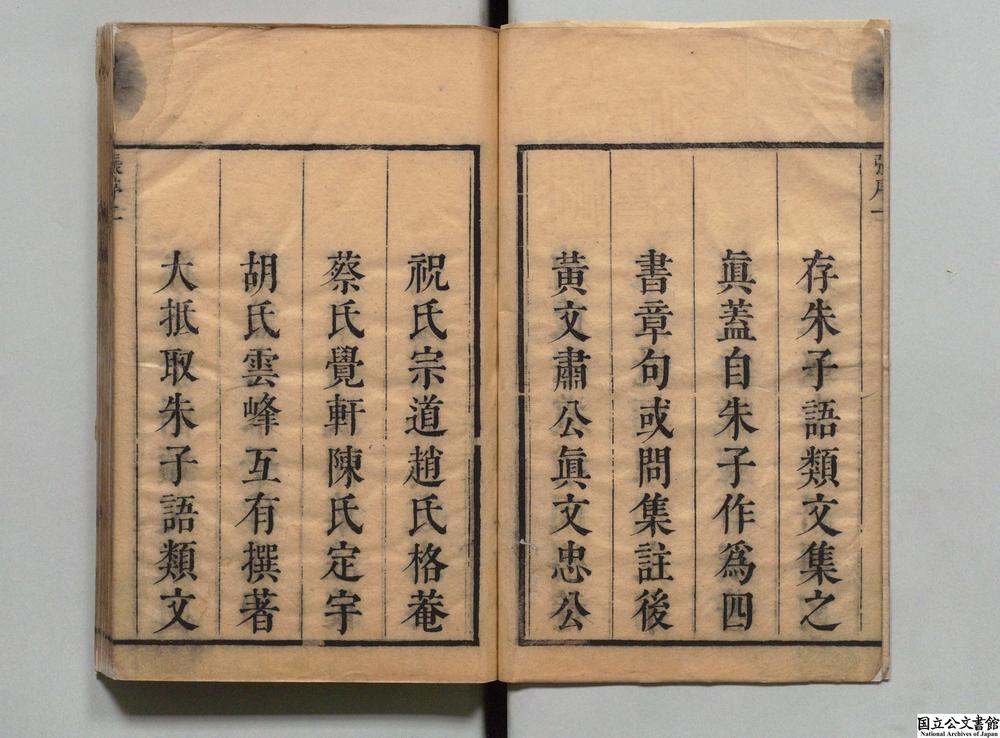 張序一
存朱子語類文集之
眞蓋自朱子作爲四
書章句或問集註後
黃文肅公眞文忠公
祝氏宗道趙氏格菴
蔡氏覺軒陳氏定宇
胡氏雲峰互有撰著
大抵取朱子語類文
張序二
国立公文書館
National Archives of Japan